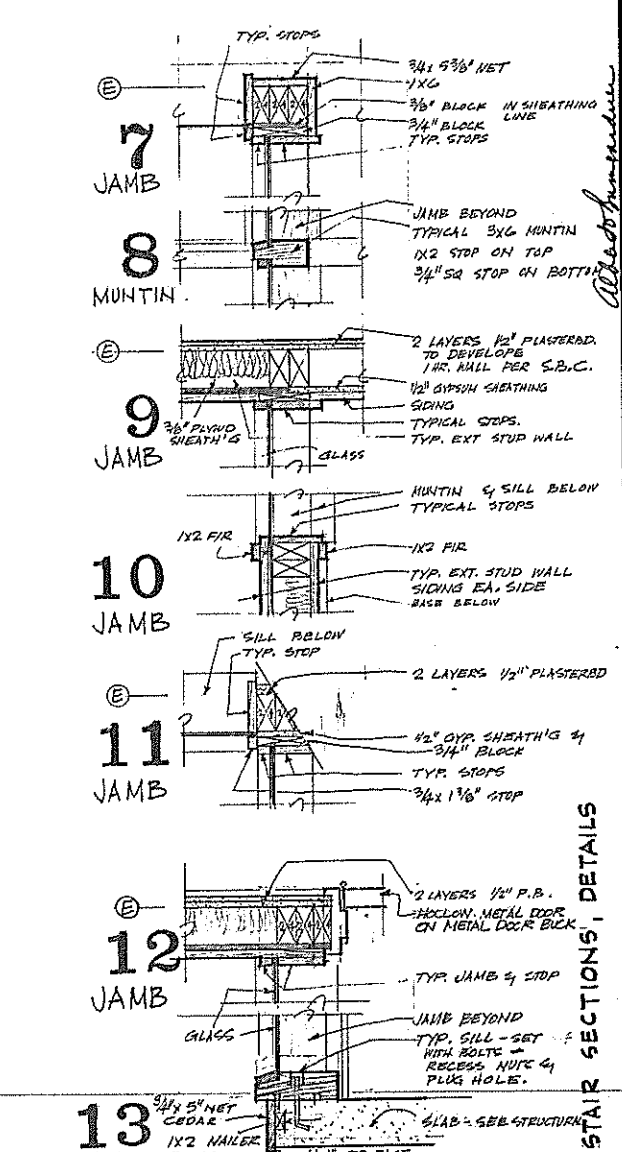 TYP. STOPS
3/4 x 5 3/8" NET
1X6
3/8" BLOCK IN SHEATHING
LINE
3/4" BLOCK
TYP. STOPS
E
7
JAMB
JAMB BEYOND
TYPICAL 3X6 MUNTIN
1X2 STOP ON TOP
3/4" SQ STOP ON BOTTOM
8
MUNTIN
E
2 LAYERS 1/2" PLASTERBD.
TO DEVELOPE
1 HR. WALL PER S.B.C.
1/2" GYPSUM SHEATHING
SIDING
TYPICAL STOPS.
TYP. EXT STUD WALL
9
JAMB
3/8" PLYWD
SHEATH'G
GLASS
MUNTIN & SILL BELOW
TYPICAL STOPS
1X2 FIR
1X2 FIR
10
JAMB
TYP. EXT. STUD WALL
SIDING EA. SIDE
BASE BELOW
SILL BELOW
TYP. STOP
E
2 LAYERS 1/2" PLASTERBD
11
JAMB
1/2" GYP. SHEATH'G &
3/4" BLOCK
TYP. STOPS
3/4 x 1 3/8" STOP
E
2 LAYERS 1/2" P.B.
HOLLOW METAL DOOR
ON METAL DOOR BUCK
12
JAMB
TYP. JAMB & STOP
GLASS
JAMB BEYOND
TYP. SILL - SET
WITH BOLTS -
RECESS NUTS &
PLUG HOLE.
13
3/4 x 5" NET
CEDAR
1X2 NAILER
SLAB - SEE STRUCTURAL
STAIR SECTIONS, DETAILS